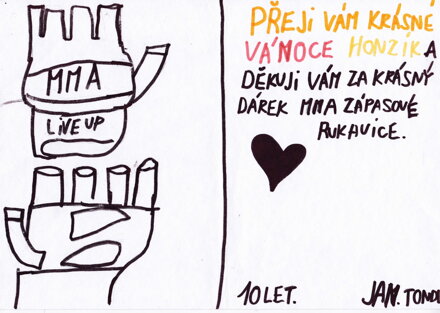 MMA
LIVE UP
PŘEJI VÁM KRÁSNÉ
VÁNOCE HONZÍK A
DĚKUJI VÁM ZA KRÁSNÝ
DÁREK MMA ZÁPASOVÉ
RUKAVICE.
10 LET.
JAN.